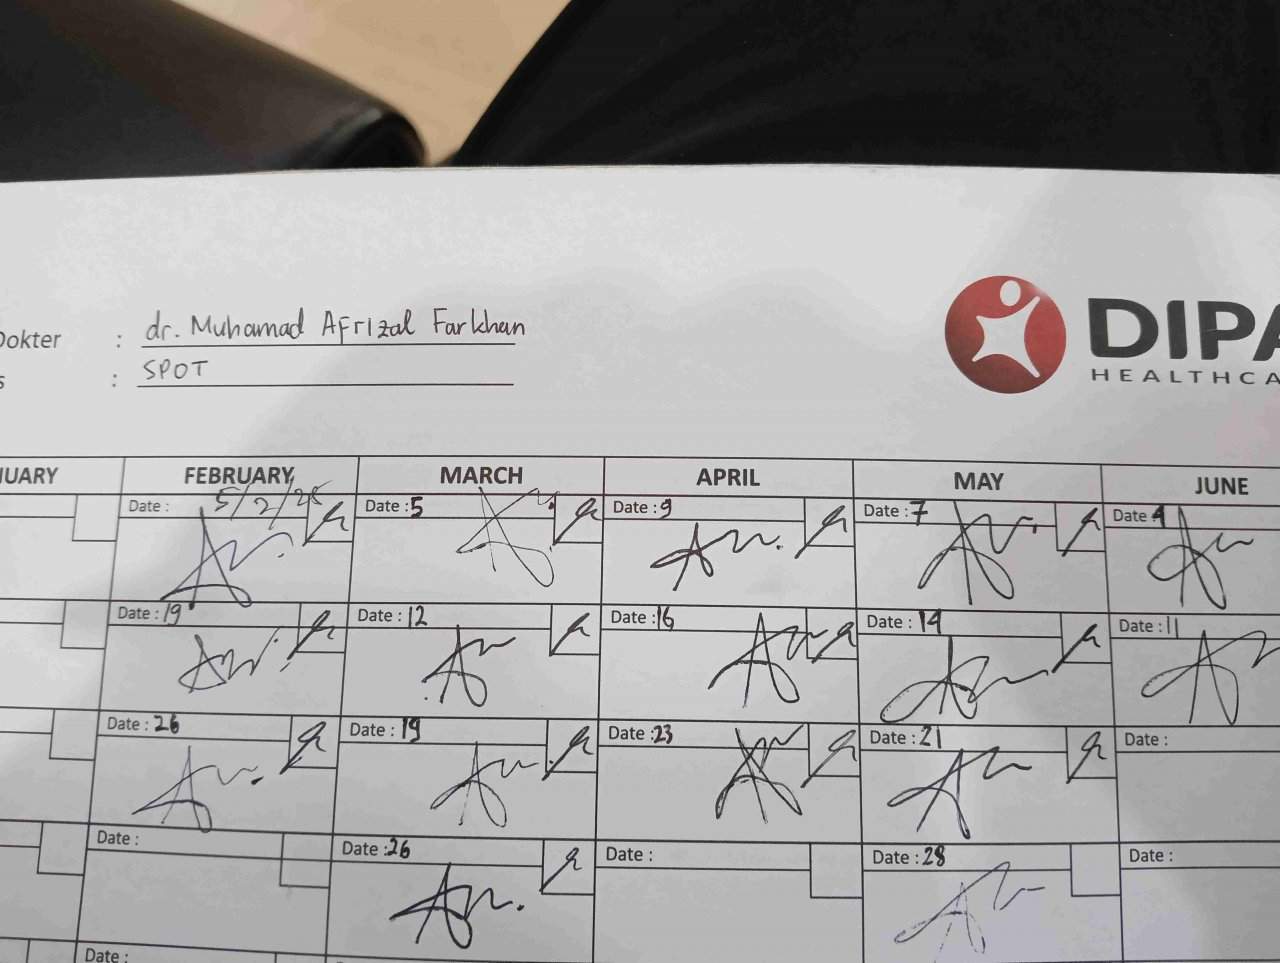 Dokter : dr. Muhamad Afrizal Farkhan
s : SPOT
DIPA
HEALTHCA
UARY FEBRUARY MARCH APRIL MAY JUNE
Date : 5/2/25 Date : 5 Date : 9 Date : 7 Date 4
Date : 19 Date : 12 Date : 16 Date : 14 Date : 11
Date : 26 Date : 19 Date : 23 Date : 21 Date :
Date : Date : 26 Date : Date : 28 Date :
Date :